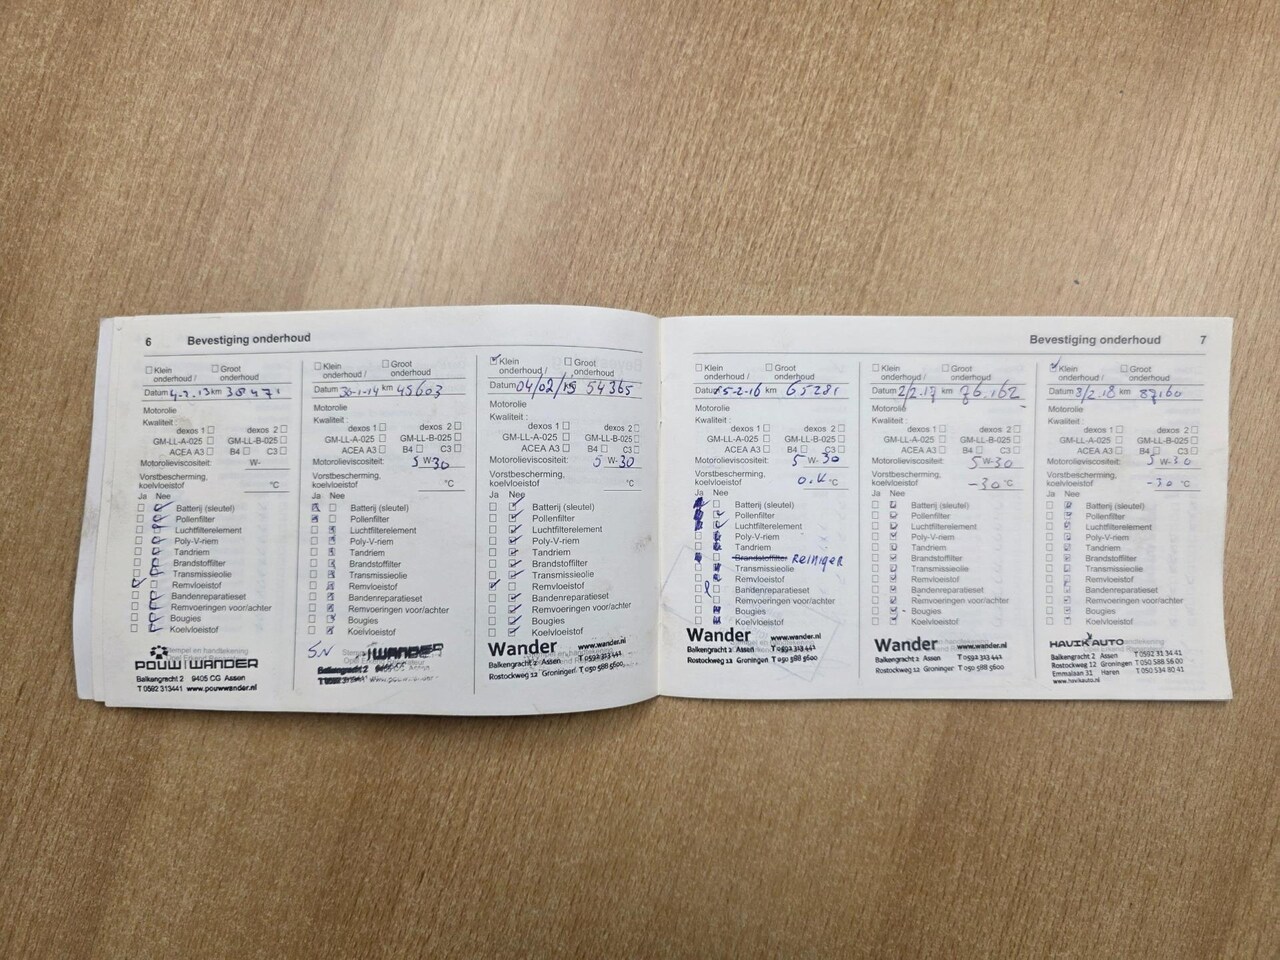 6 Bevestiging onderhoud
Klein onderhoud / Groot onderhoud
Datum 4-2.13 km 38471
Motorolie
Kwaliteit :
dexos 1 dexos 2
GM-LL-A-025 GM-LL-B-025
ACEA A3 B4 C3
Motorolieviscositeit: W-
Vorstbescherming,
koelvloeistof °C
Ja Nee
Batterij (sleutel)
Pollenfilter
Luchtfilterelement
Poly-V-riem
Tandriem
Brandstoffilter
Transmissieolie
Remvloeistof
Bandenreparatieset
Remvoeringen voor/achter
Bougies
Koelvloeistof
POUW WANDER
Balkengracht 2 9405 CG Assen
T 0592 313441 www.pouwwander.nl
Klein onderhoud / Groot onderhoud
Datum 30-1-14 km 45603
Motorolie
Kwaliteit :
dexos 1 dexos 2
GM-LL-A-025 GM-LL-B-025
ACEA A3 B4 C3
Motorolieviscositeit: 5 W-30
Vorstbescherming,
koelvloeistof °C
Ja Nee
Batterij (sleutel)
Pollenfilter
Luchtfilterelement
Poly-V-riem
Tandriem
Brandstoffilter
Transmissieolie
Remvloeistof
Bandenreparatieset
Remvoeringen voor/achter
Bougies
Koelvloeistof
WANDER
Balkengracht 2
Klein onderhoud / Groot onderhoud
Datum 04/02/15 54365
Motorolie
Kwaliteit :
dexos 1 dexos 2
GM-LL-A-025 GM-LL-B-025
ACEA A3 B4 C3
Motorolieviscositeit: 5 W-30
Vorstbescherming,
koelvloeistof °C
Ja Nee
Batterij (sleutel)
Pollenfilter
Luchtfilterelement
Poly-V-riem
Tandriem
Brandstoffilter
Transmissieolie
Remvloeistof
Bandenreparatieset
Remvoeringen voor/achter
Bougies
Koelvloeistof
Wander www.wander.nl
Balkengracht 2 Assen T 0592 313 441
Rostockweg 12 Groningen T 050 588 5600
Bevestiging onderhoud 7
Klein onderhoud / Groot onderhoud
Datum 15-2-16 km 65281
Motorolie
Kwaliteit :
dexos 1 dexos 2
GM-LL-A-025 GM-LL-B-025
ACEA A3 B4 C3
Motorolieviscositeit: 5 W-30
Vorstbescherming,
koelvloeistof O.K °C
Ja Nee
Batterij (sleutel)
Pollenfilter
Luchtfilterelement
Poly-V-riem
Tandriem
Brandstoffilter REINIGER
Transmissieolie
Remvloeistof
Bandenreparatieset
Remvoeringen voor/achter
Bougies
Koelvloeistof
Wander www.wander.nl
Balkengracht 2 Assen T 0592 313 441
Rostockweg 12 Groningen T 050 588 5600
Klein onderhoud / Groot onderhoud
Datum 2/2.17 km 76.162
Motorolie
Kwaliteit :
dexos 1 dexos 2
GM-LL-A-025 GM-LL-B-025
ACEA A3 B4 C3
Motorolieviscositeit: 5 W-30
Vorstbescherming,
koelvloeistof -30 °C
Ja Nee
Batterij (sleutel)
Pollenfilter
Luchtfilterelement
Poly-V-riem
Tandriem
Brandstoffilter
Transmissieolie
Remvloeistof
Bandenreparatieset
Remvoeringen voor/achter
Bougies
Koelvloeistof
Wander www.wander.nl
Balkengracht 2 Assen T 0592 313 441
Rostockweg 12 Groningen T 050 588 5600
Klein onderhoud / Groot onderhoud
Datum 3/2.18 km 87160
Motorolie
Kwaliteit :
dexos 1 dexos 2
GM-LL-A-025 GM-LL-B-025
ACEA A3 B4 C3
Motorolieviscositeit: 5 W-30
Vorstbescherming,
koelvloeistof -30 °C
Ja Nee
Batterij (sleutel)
Pollenfilter
Luchtfilterelement
Poly-V-riem
Tandriem
Brandstoffilter
Transmissieolie
Remvloeistof
Bandenreparatieset
Remvoeringen voor/achter
Bougies
Koelvloeistof
HAVIK AUTO
Balkengracht 2 Assen T 0592 31 34 41
Rostockweg 12 Groningen T 050 588 56 00
Emmalaan 31 Haren T 050 534 80 41
www.havikauto.nl